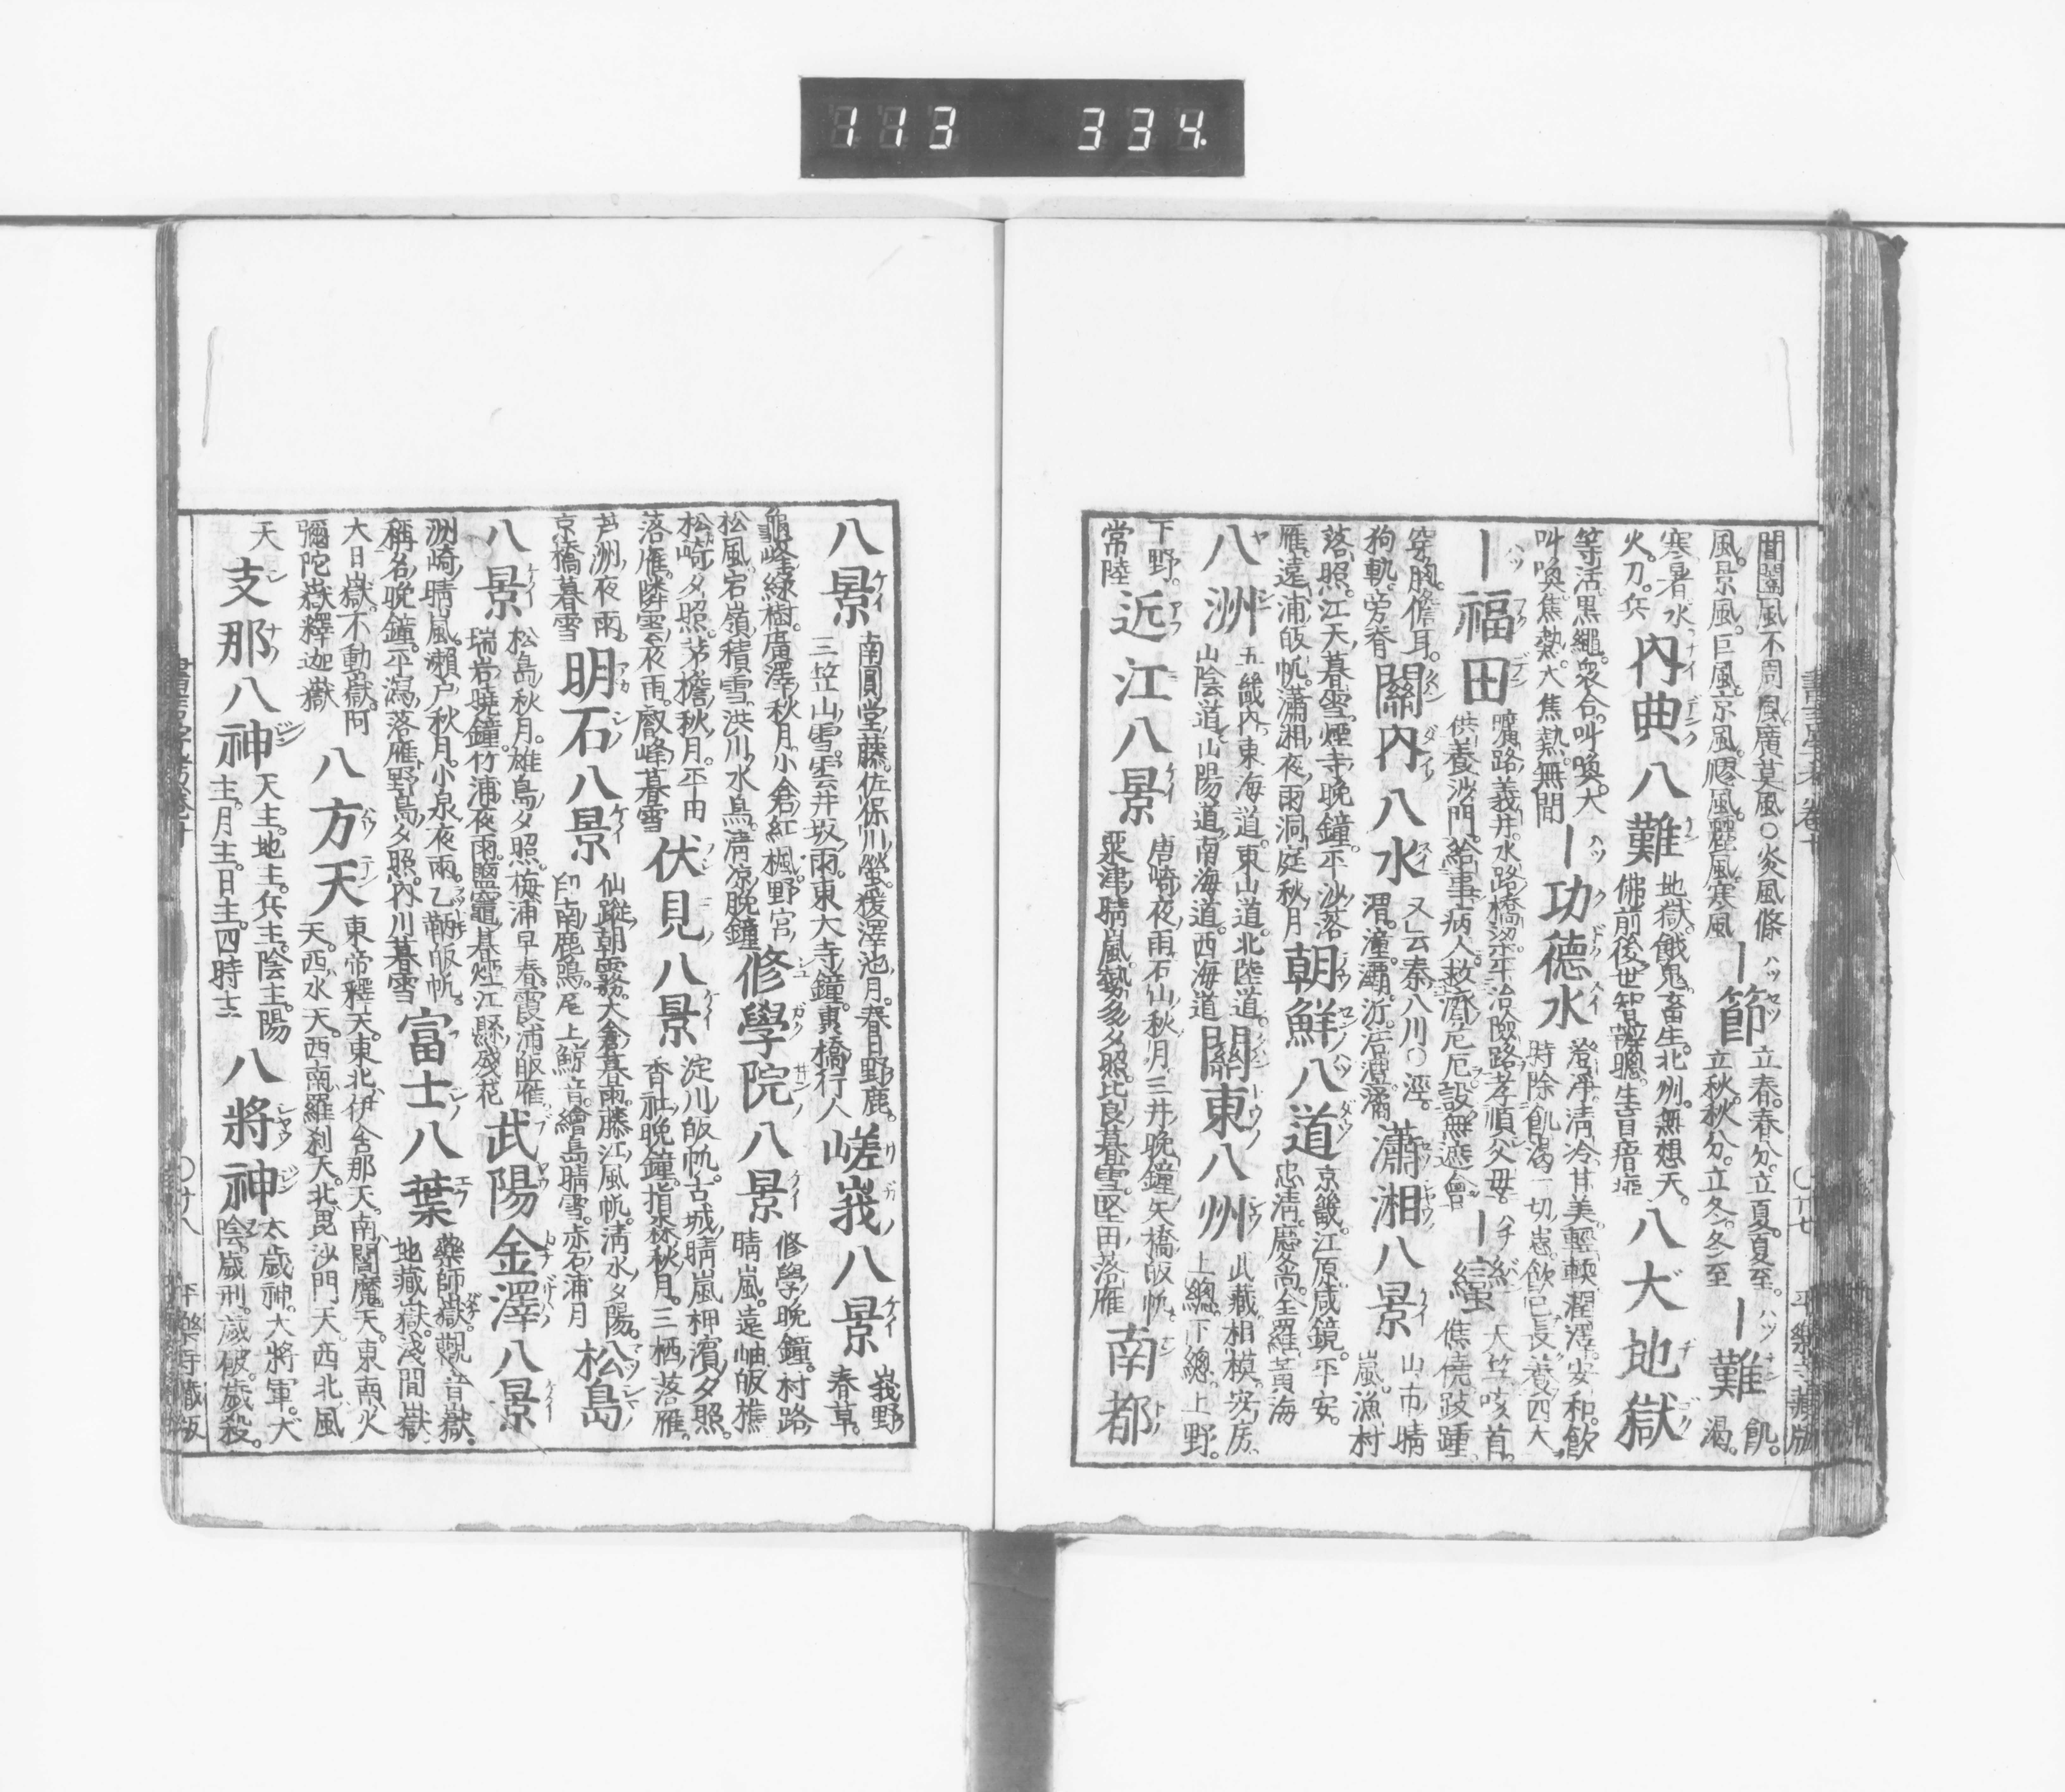 113 334.
閶闔風不周風廣莫風〇炎風條
風景風巨風凉風飂風麗風寒風
｜節 立春。春分。立夏。夏至。
立秋。秋分。立冬。冬至
｜難 飢。渇。
寒。暑。水。
火。刀。兵
內典八難 地獄。餓鬼。畜生。北州。無想天。
佛前後。世智辯聰。生盲瘖瘂
八大地獄
等活。黑繩。衆合。叫喚。大
叫喚。焦熱。大焦熱。無間
｜功德水 澄淨。淸冷。甘美。輕軟。潤澤。安和。飮
時除飢渴一切患。飮已長養四大
｜福田 曠路義井。水路橋梁。平治險路。孝順父母。
供養沙門。給事病人。救濟危厄。設無遮會
｜蠻 天竺。咳首。
僬僥。跂踵。
穿胸。儋耳。
狗軌。旁脊
關內八水 又云秦八川〇涇。
渭。
瀟湘八景 山市晴
嵐。漁村
落照。江天暮雪。煙寺晩鐘。平沙落
雁。遠浦皈帆。瀟湘夜雨。洞庭秋月
朝鮮八道 京畿。江原。咸鏡。平安。
忠淸。慶尙。全羅。黃海
八洲 五畿內。東海道。東山道。北陸道。
山陰道。山陽道。南海道。西海道
關東八州 武藏。相模。安房。
上總。下總。上野。
下野。
常陸
近江八景 唐崎夜雨。石山秋月。三井晩鐘。矢橋皈帆。
粟津晴嵐。勢多夕照。比良暮雪。堅田落雁
南都
八景 南圓堂藤。佐保川螢。猿澤池月。春日野鹿。
三笠山雪。雲井坂雨。東大寺鐘。轟橋行人
嵯峩八景 峩野
春草。
龜峰綠樹。廣澤秋月。小倉紅楓。野宮
松風。宕嶺積雪。洪川水鳥。淸凉晩鐘
修學院八景 修學晩鐘。村路
晴嵐。遠岫皈樵
松崎夕照。茅檐秋月。平田
落雁。隣雲夜雨。叡峰暮雪
伏見八景 淀川皈帆。古城晴嵐。柙濱夕照。
香社晩鐘。指森秋月。三栖落雁。
芦洲夜雨。
京橋暮雪
明石八景 仙蹤朝霧。大倉暮雨。藤江風帆。淸水夕陽。
印南鹿鳴。尾上鯨音。繪島晴雪。赤石浦月
松島
八景 松島秋月。雄島夕照。梅浦早春。霞浦皈雁
瑞岩曉鐘。竹浦夜雨。鹽竈暮煙。江縣殘花
武陽金澤八景
洲崎晴嵐。瀨戶秋月。小泉夜雨。乙鞆皈帆。
稱名晩鐘。平瀉落雁。野島夕照。內川暮雪
富士八葉 藥師嶽。觀音嶽。
地藏嶽。淺間嶽。
大日嶽。不動嶽。阿
彌陀嶽。釋迦嶽
八方天 東帝釋天。東北伊舍那天。南閻魔天。東南火
天。西水天。西南羅刹天。北毘沙門天。西北風
天
支那八神 天主。地主。兵主。陰主。陽
主。月主。日主。四時主
八將神 太歲神。大將軍。大
陰。歲刑。歲破。歲殺。